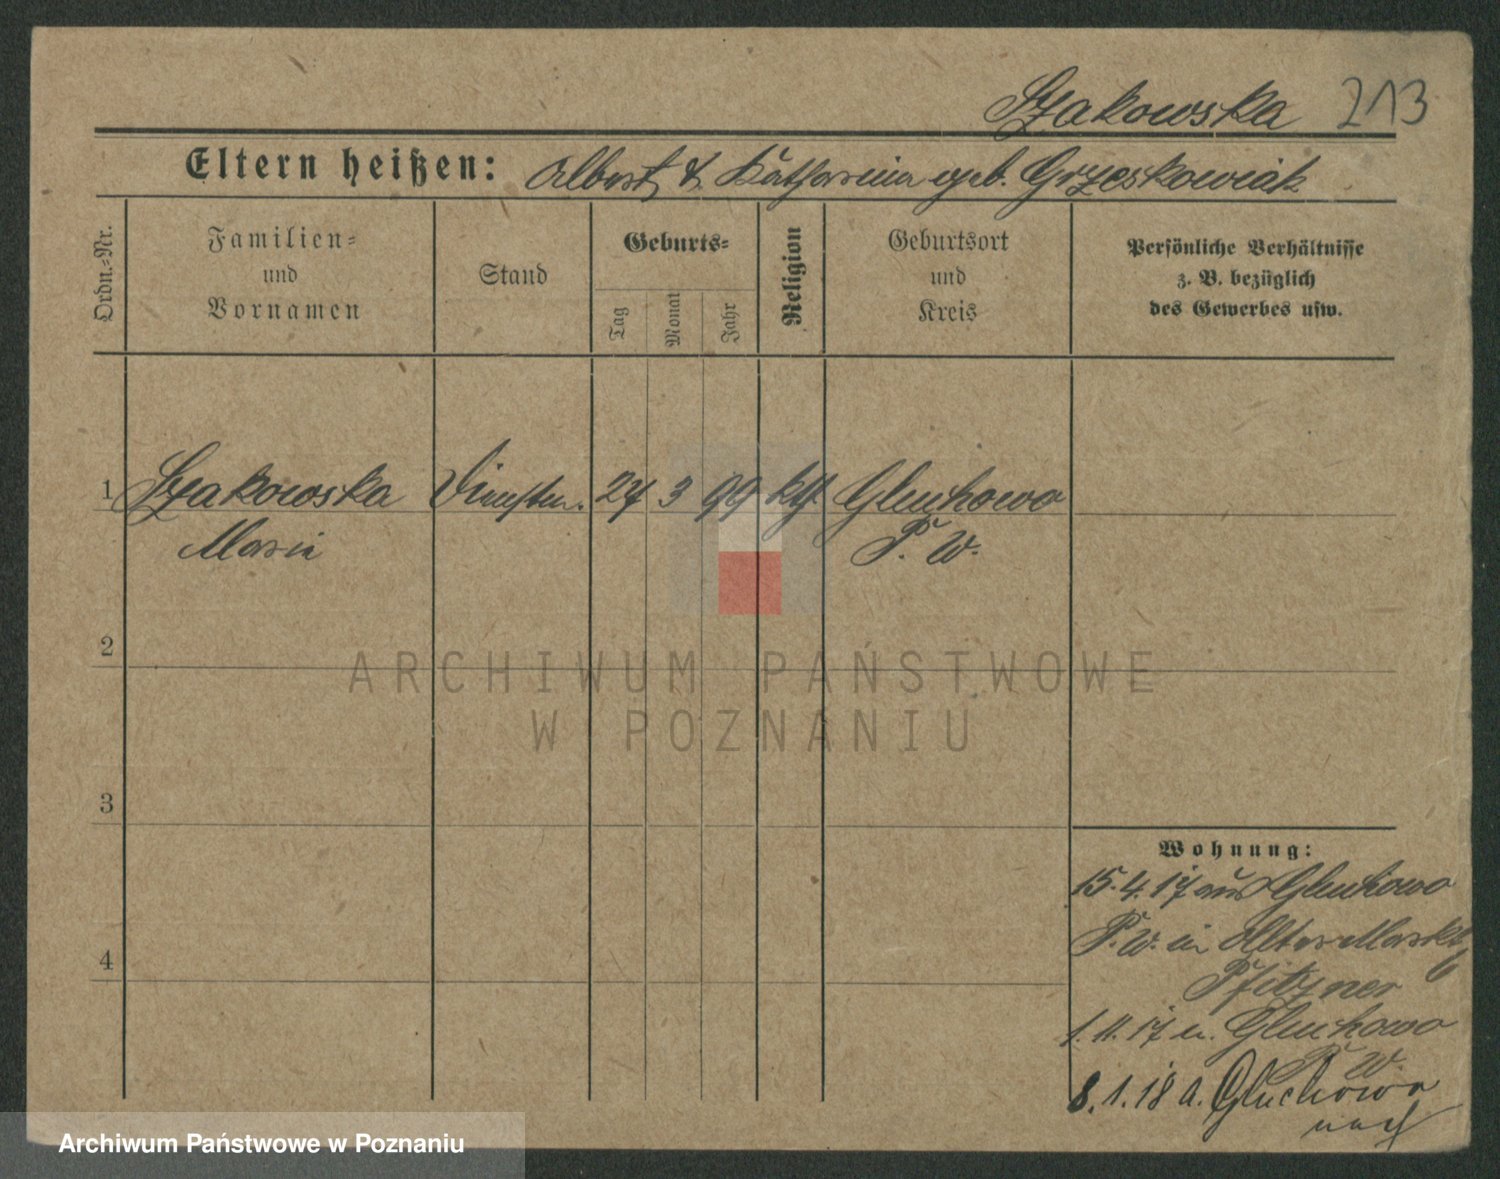 Szakowska 213
Eltern heißen: Albert & Katharina geb. Grzeskowiak
Ordn.-Nr.
Familien-
und
Vornamen
Stand
Geburts-
Tag
Monat
Jahr
Religion
Geburtsort
und
Kreis
Persönliche Verhältnisse
z. B. bezüglich
des Gewerbes usw.
1 Szakowska 24 3 99 kth. Gluchowo
Maria P. W.
2
3
4
Wohnung:
15.4.17 aus Gluchowo
P. W. in Alter Markt 6
Pfitzner
1.11.17 n. Gluchowo
P. W.
8.1.18 a. Gluchowo
nach
ARCHIWUM PAŃSTWOWE
W POZNANIU
Archiwum Państwowe w Poznaniu